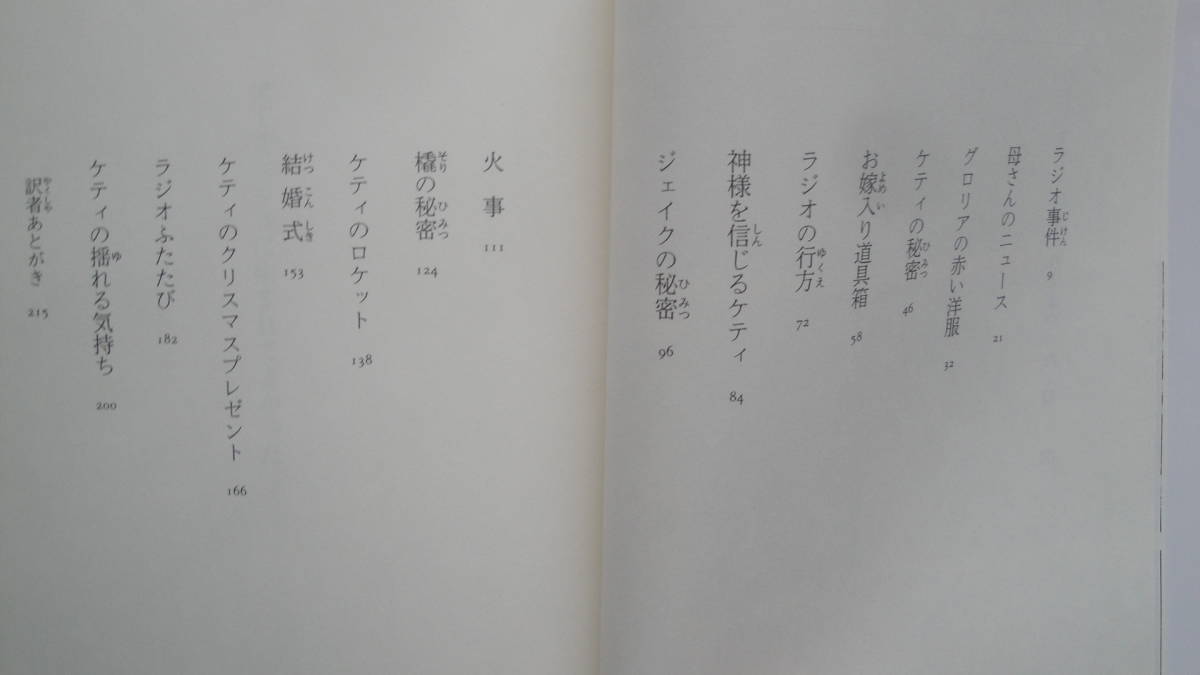 ラジオ事件 9
母さんのニュース 21
グロリアの赤い洋服 32
ケティの秘密 46
お嫁入り道具箱 58
ラジオの行方 72
神様を信じるケティ 84
ジェイクの秘密 96
火事 111
橇の秘密 124
ケティのロケット 138
結婚式 153
ケティのクリスマスプレゼント 166
ラジオふたたび 182
ケティの揺れる気持ち 200
訳者あとがき 215